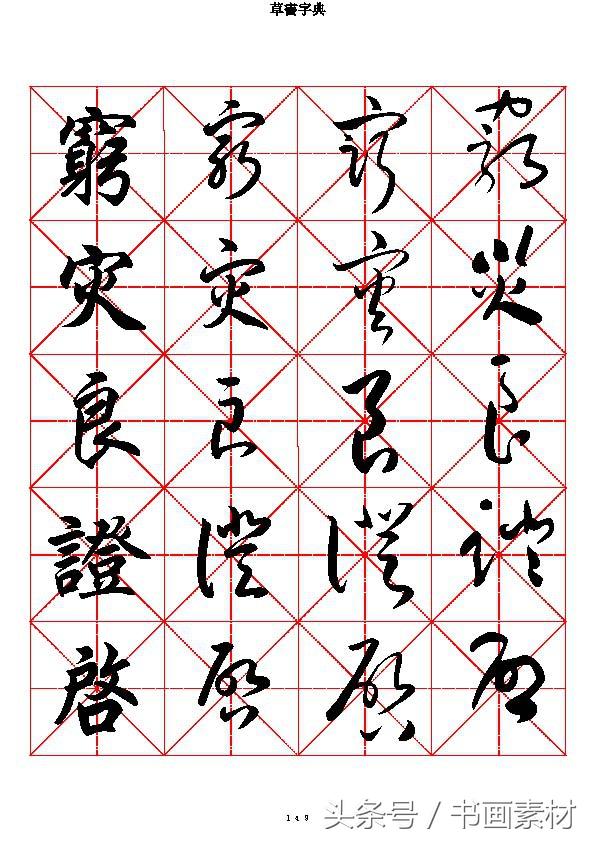 草書字典
窮 窮 窮 窮
灾 灾 灾 災
良 良 良 良
證 證 證 證
啓 啓 啓 啓
149
头条号 / 书画素材